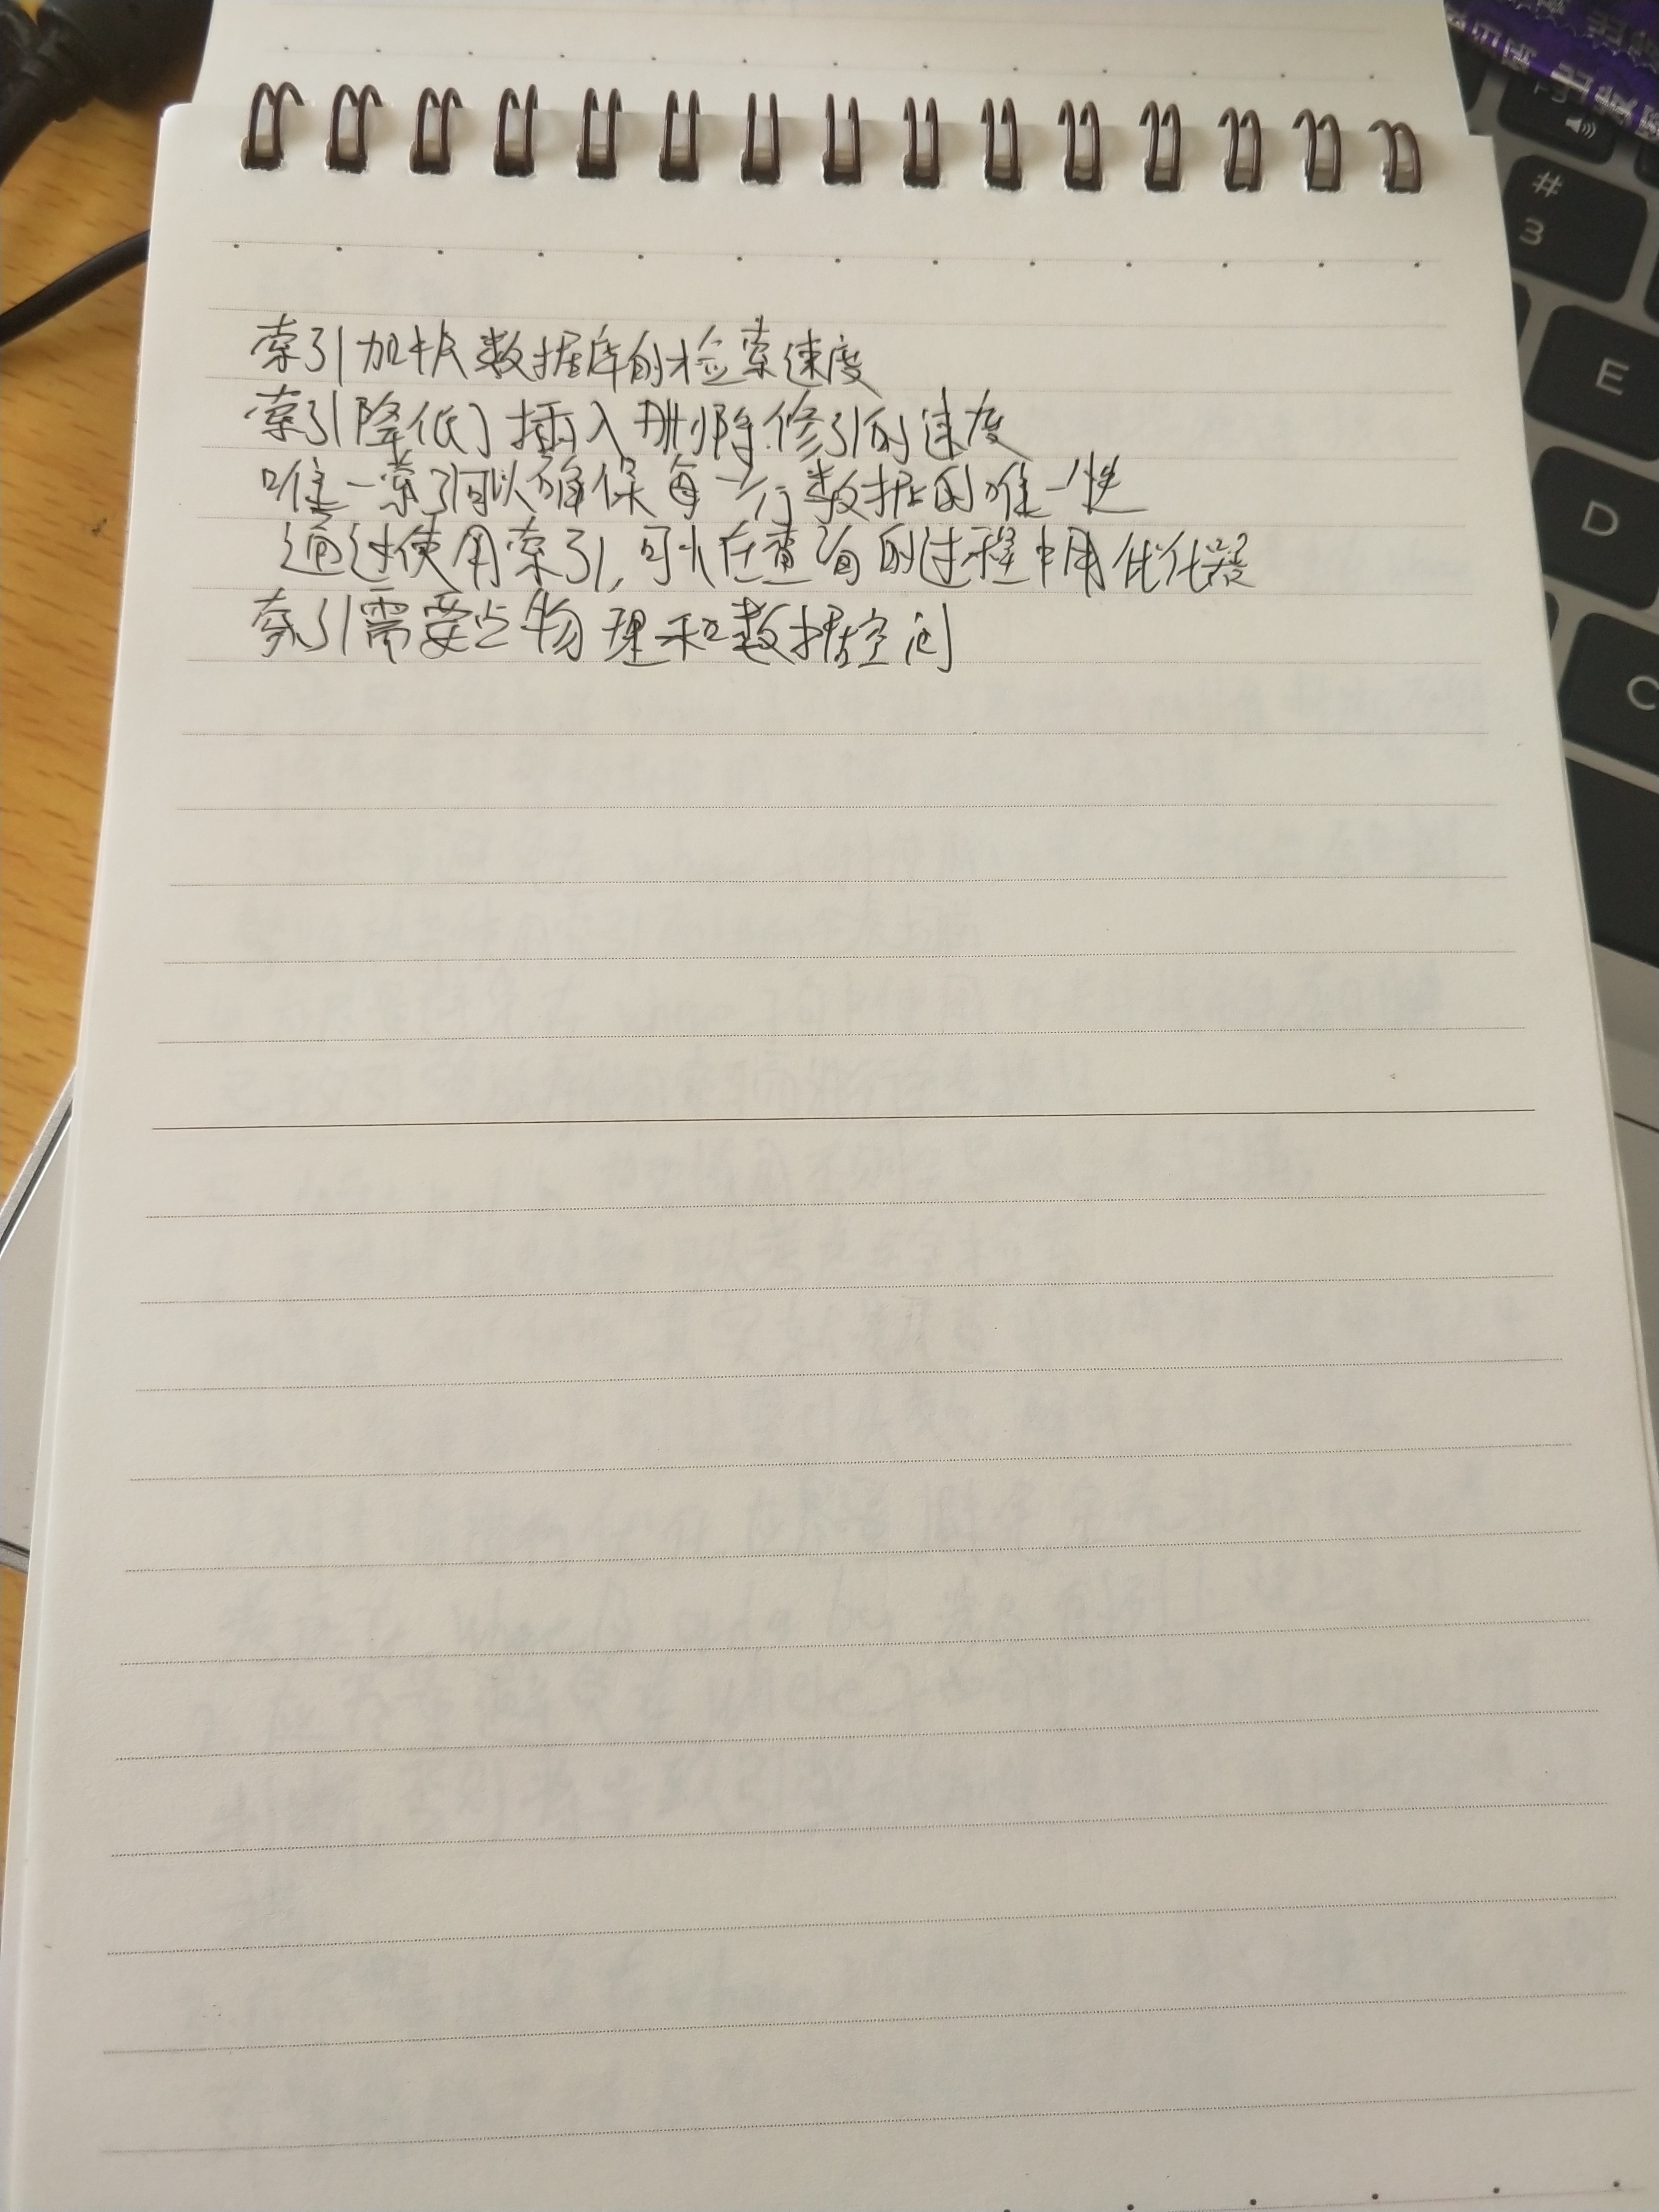 索引加快数据库的检索速度
索引降低了插入删除修引的速度
唯一索引可以确保每一行数据的唯一性
通过使用索引,可以在查询的过程中用优化器
索引需要占物理和数据空间
F3
#
3
E
D
C